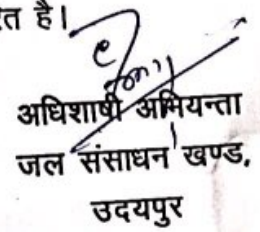 है।
अधिशाषी अभियन्ता
जल संसाधन खण्ड,
उदयपुर